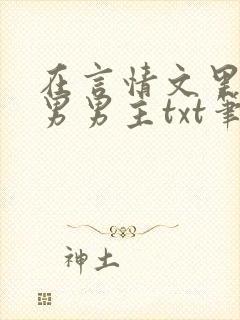 在言情文里
男男主txt笔
神土